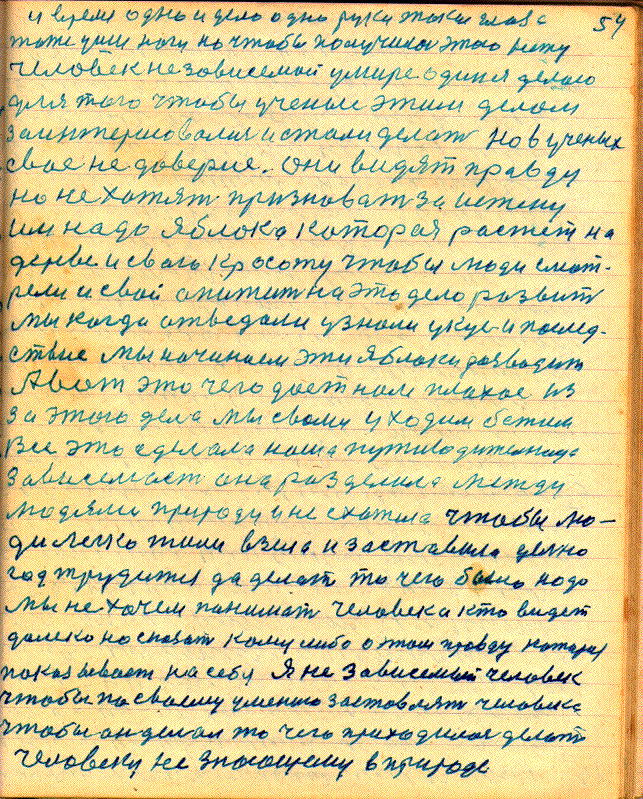 и время одно и дело одно руки такие глаза 54
тоже уши ноги но чтобы получилос этого нету
человек не зависемой у мире один я делаю
для того чтобы ученые этим делом
заинтерисовалия и стали делат но в ученых
свое не доверие. они видят правду
но не хотят признават за истену
им надо яблока которая растет на
дереве и сваю красоту чтобы люди смот-
рели и свой апитит на это дело развит
мы когда отведали узнали укус и послед-
ствие мы начинаем эти яблоки розводит
А вот это чего дает нам плахое из
за этого дела мы свому уходим бежим
все это сделала наша
зависемаст она разделила между
людями природу и не схотила чтобы лю-
ди легко жили взяла и заставила
год трудится да делат то чего было надо
мы не хочем панимат человека кто видет
далеко но сказат кому либо о этом правду котарая
показывает на себя Я не зависемый человек
чтобы по своему умению заставлят человека
чтобы он делал то чего приходилос делат
человеку не знающему в природе